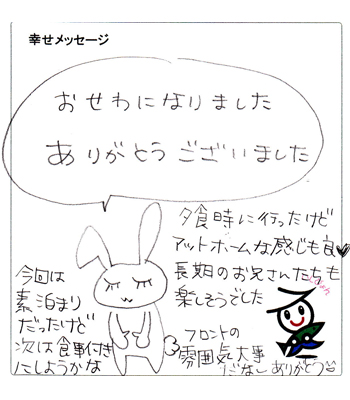 幸せメッセージ
おせわになりました
ありがとうございました
夕食時に行ったけど
アットホームな感じも良♥
長期のお兄さんたちも
楽しそうでした
今回は
素泊まり
だったけど
次は食事付き
にしようかな
フロントの
雰囲気大事
だなぁ ありがとう